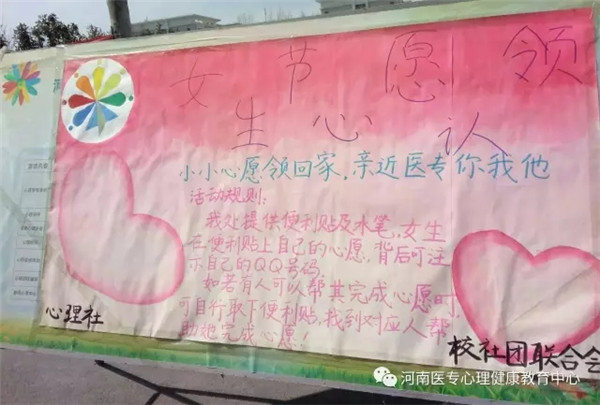 女生节心愿认领
小小心愿领回家,亲近医专你我他
活动规则:
我处提供便利贴及水笔,女生
在便利贴上自己的心愿,背后可注
示自己的QQ号码
如若有人可以帮其完成心愿时,
可自行取下便利贴,找到对应人帮
助她完成心愿!
心理社
校社团联合会
河南医专心理健康教育中心